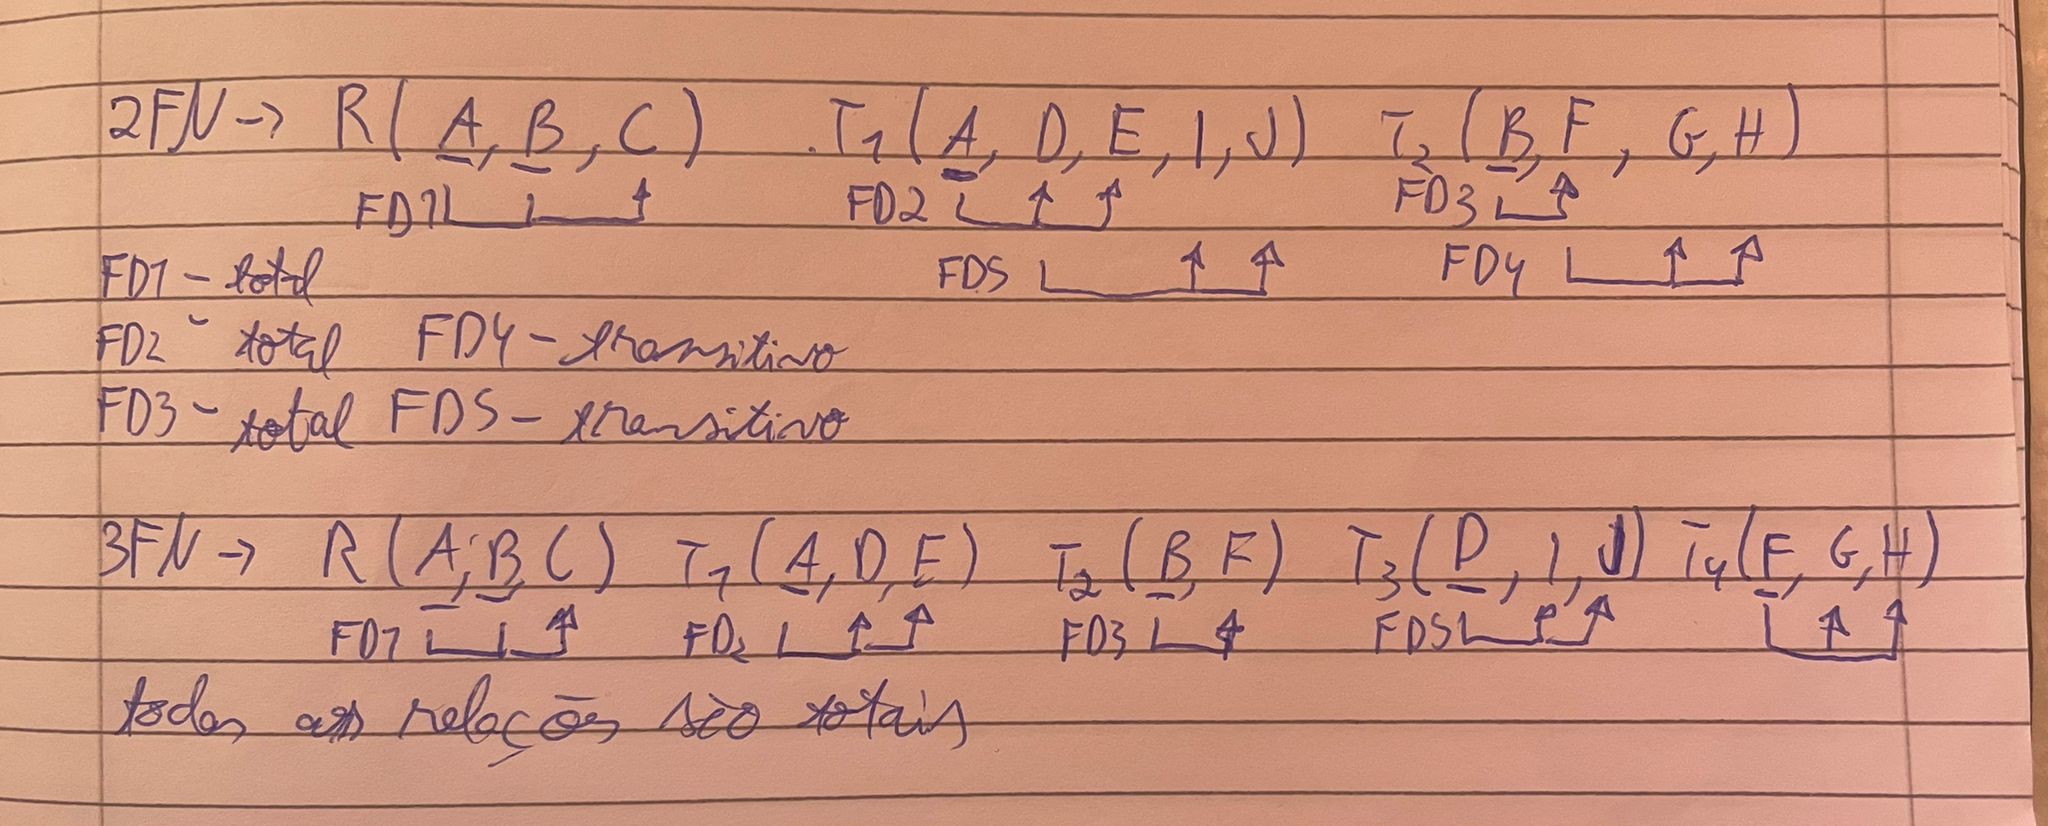 2FN → R(A, B, C) T1(A, D, E, I, J) T2(B, F, G, H)
FD1 FD2 FD3
FD1 - total FD5 FD4
FD2 - total FD4 - transitivo
FD3 - total FD5 - transitivo
3FN → R(A, B, C) T1(A, D, E) T2(B, F) T3(D, I, J) T4(F, G, H)
FD1 FD2 FD3 FD5
todas as relações são totais